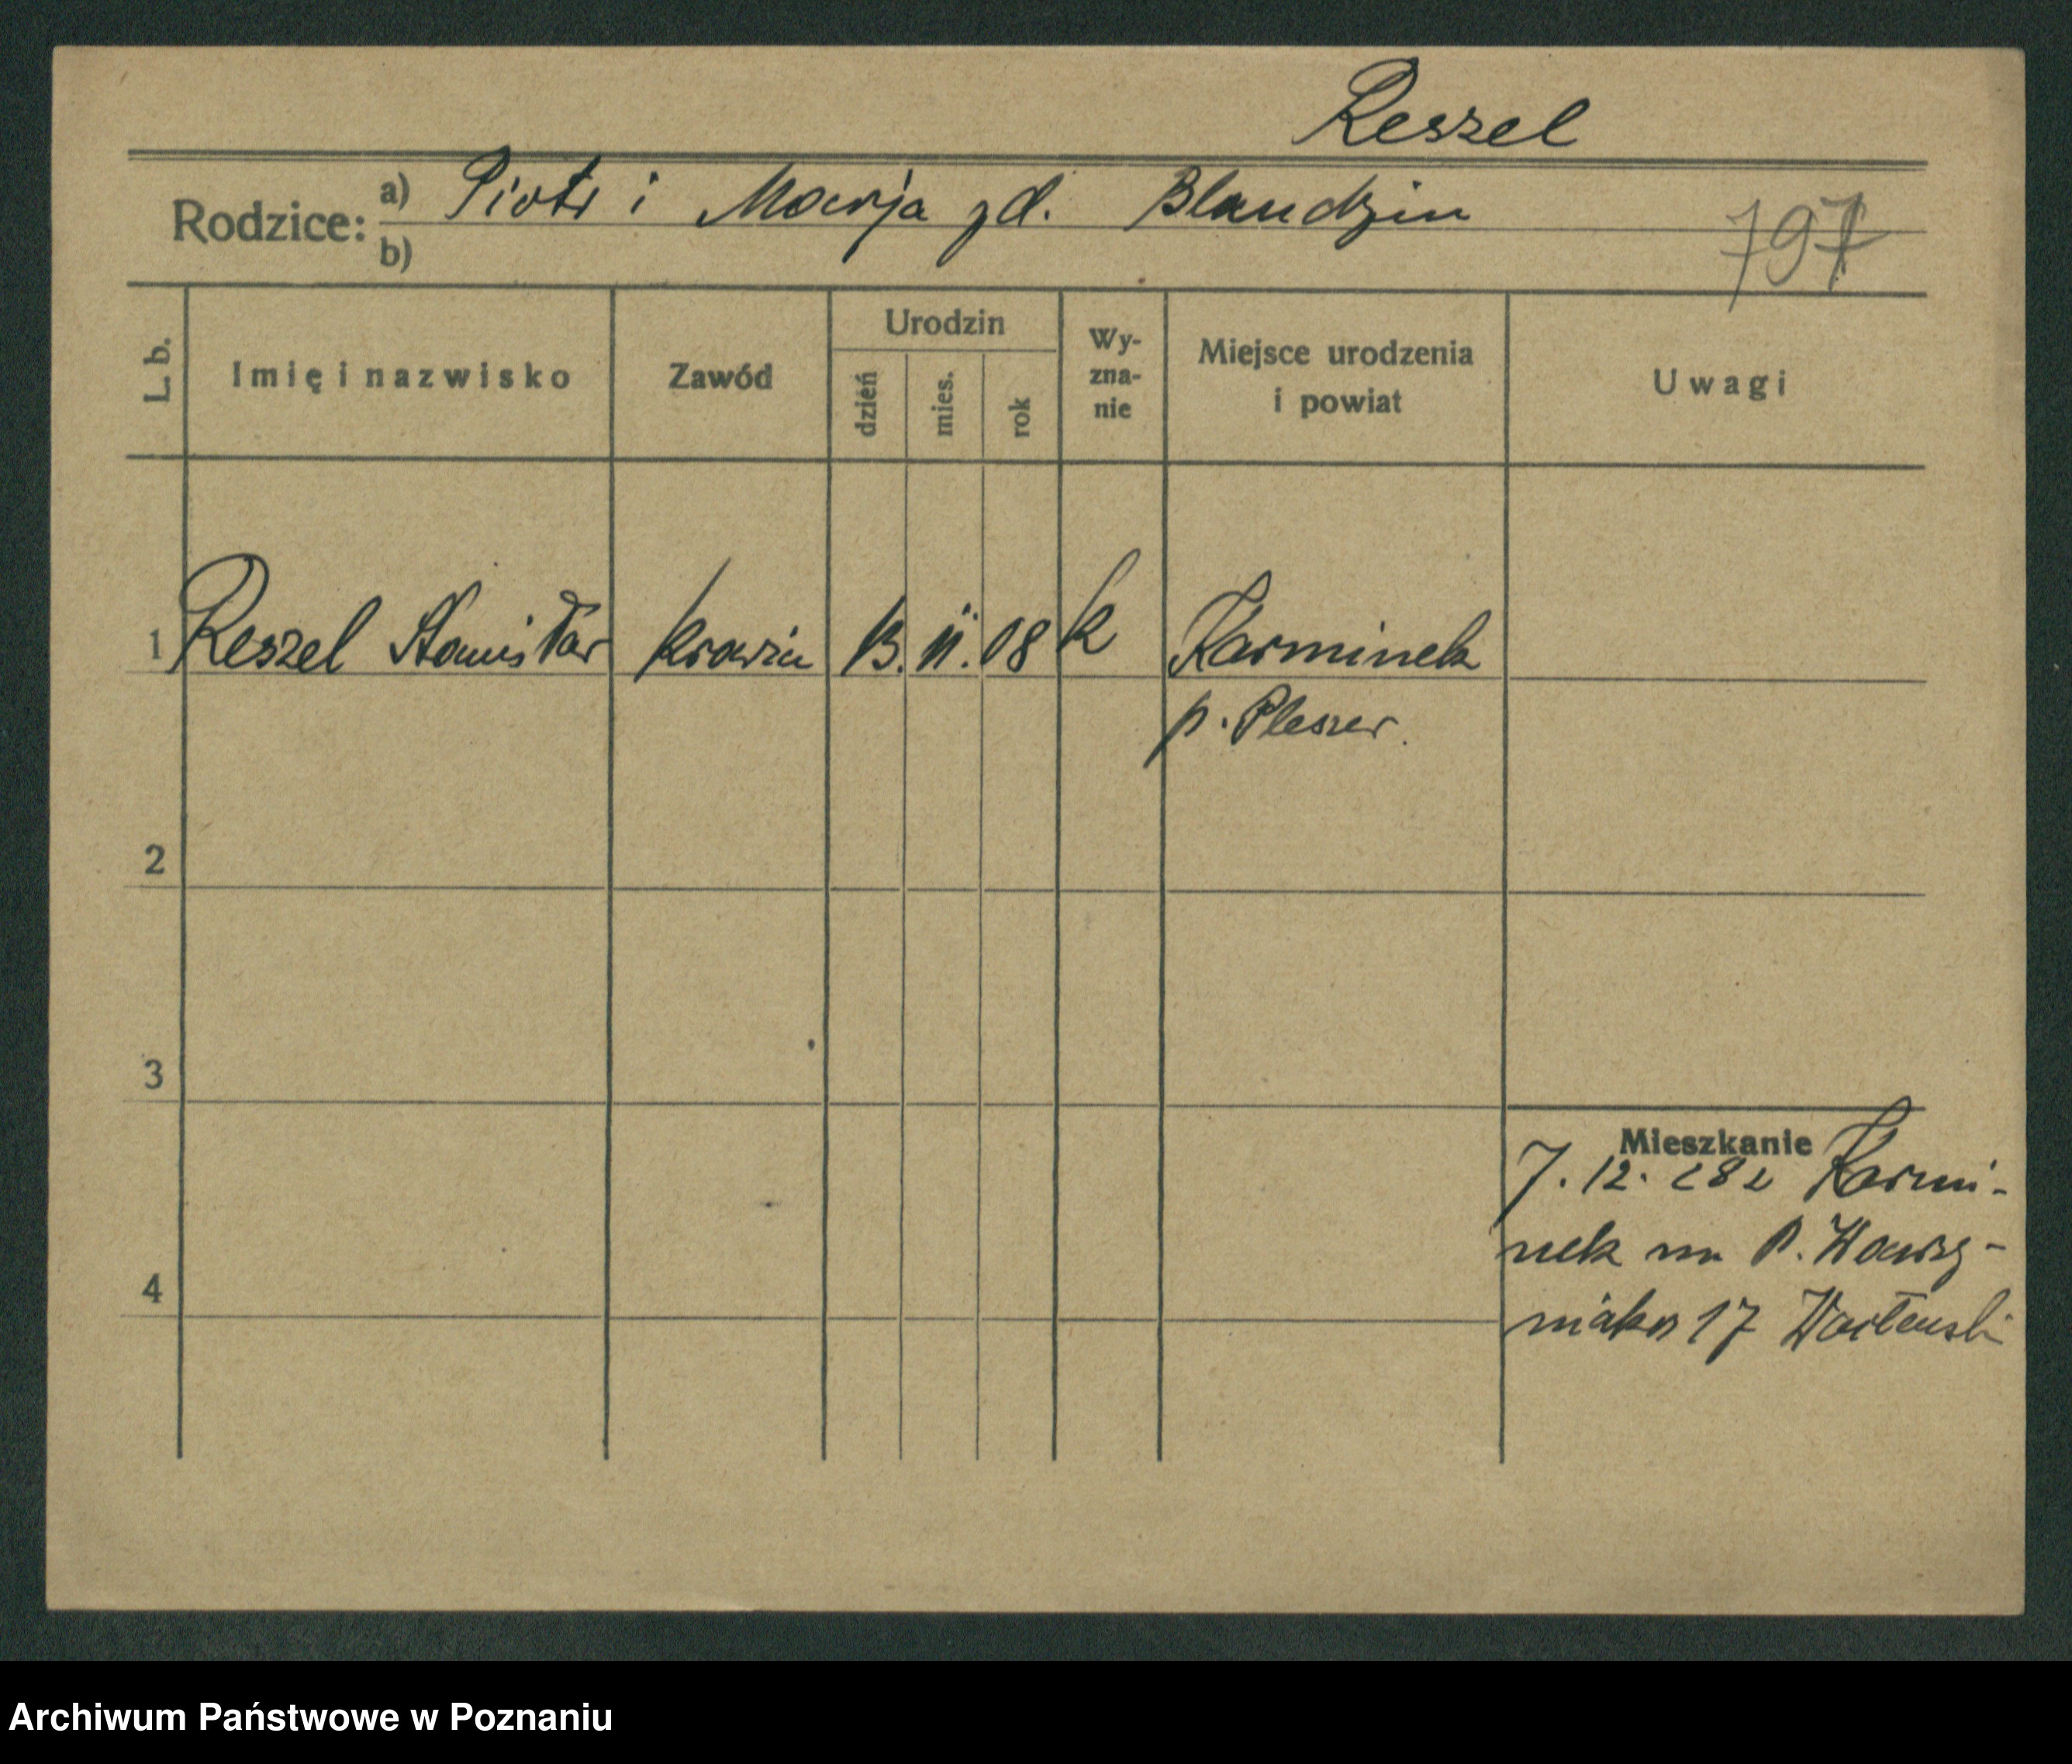 Reszel
Rodzice: a) Piotr i Marja zd. Blandzin
b)
797
L. b. Imię i nazwisko Zawód Urodzin dzień mies. rok Wy-zna-nie Miejsce urodzenia i powiat Uwagi
1 Reszel Stanisław 13. 11. 08 k Karminek
p. Pleszew.
2
3
Mieszkanie
7. 12. 282 Karmi-
nek na P. Wawrzy-
4
niaka 17
Archiwum Państwowe w Poznaniu